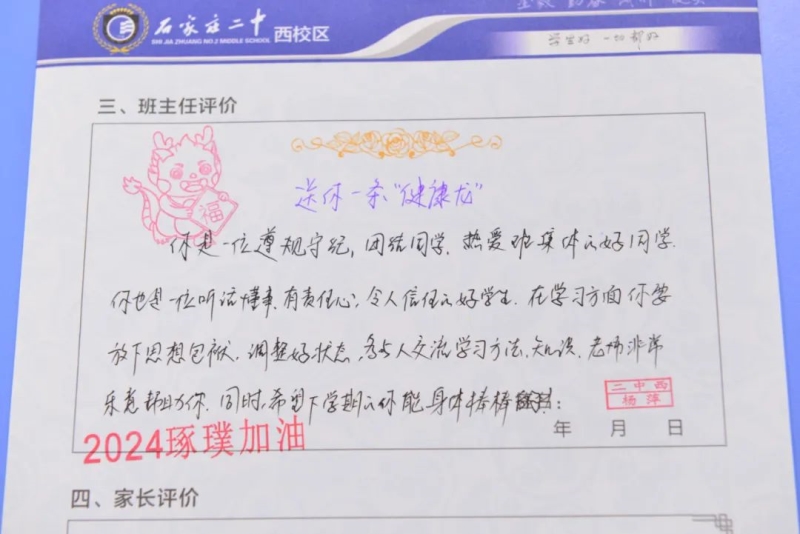 石家庄二中 西校区
SHIJIAZHUANG NO.2 MIDDLE SCHOOL
学生好 一切都好
三、班主任评价
福
送你一条“健康龙”
你是一位遵规守纪，团结同学，热爱班集体的好同学.
你也是一位听话懂事,有责任心,令人信任的好学生.在学习方面你要
放下思想包袱,调整好状态,多与人交流学习方法、知识.老师非常
乐意帮助你.同时,希望下学期的你能身体棒棒
二中西
杨萍
年 月 日
2024琢璞加油
四、家长评价